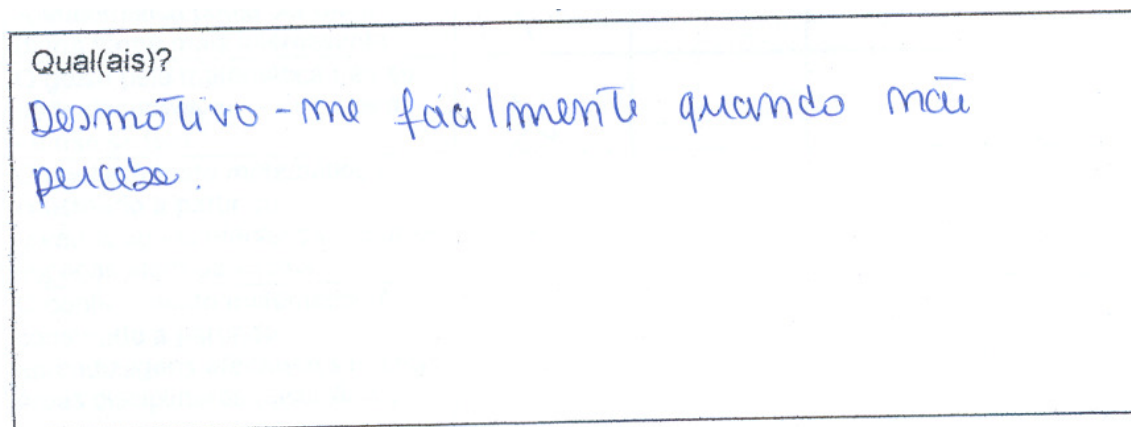 Qual(ais)?
Desmotivo-me facilmente quando não
percebo.